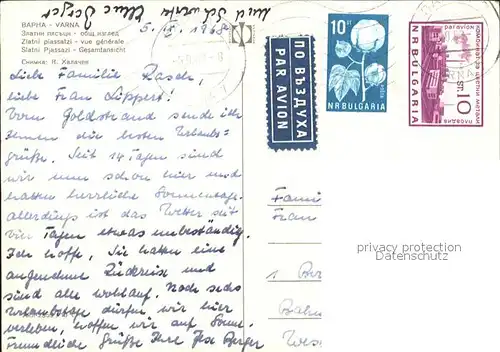 und Schwester Eline Berger
5./IX. 1968
ВАРНА - VARNA
Златни пясъци - общ изглед
Zlatni piassatzi - vue générale
Slatni Pjassazi - Gesamtansicht
Снимка: Я. Халачев
Liebe Familie Rasch,
liebe Frau Lippert!
Vom Goldstrand sende ich
Ihnen die besten Urlaubs-
grüße. Seit 14 Tagen sind
wir nun schon hier und
hatten herrliche Sonnentage.
Allerdings ist das Wetter seit
vier Tagen etwas unbeständig.
Ich hoffe, Sie hatten eine
angenehme Rückreise und
sind alle wohlauf. Noch sechs
Urlaubstage dürfen wir hier
verleben, hoffen wir auf Sonne.
Freundliche Grüße Ihre Ilse Berger
ПО ВЪЗДУХА
PAR AVION
10 ст
NR BULGARIA
PAR AVION
ст. 10
ПЛОВДИВ
N.R. BULGARIA
Famil
Frau
privacy protection
Datenschutz